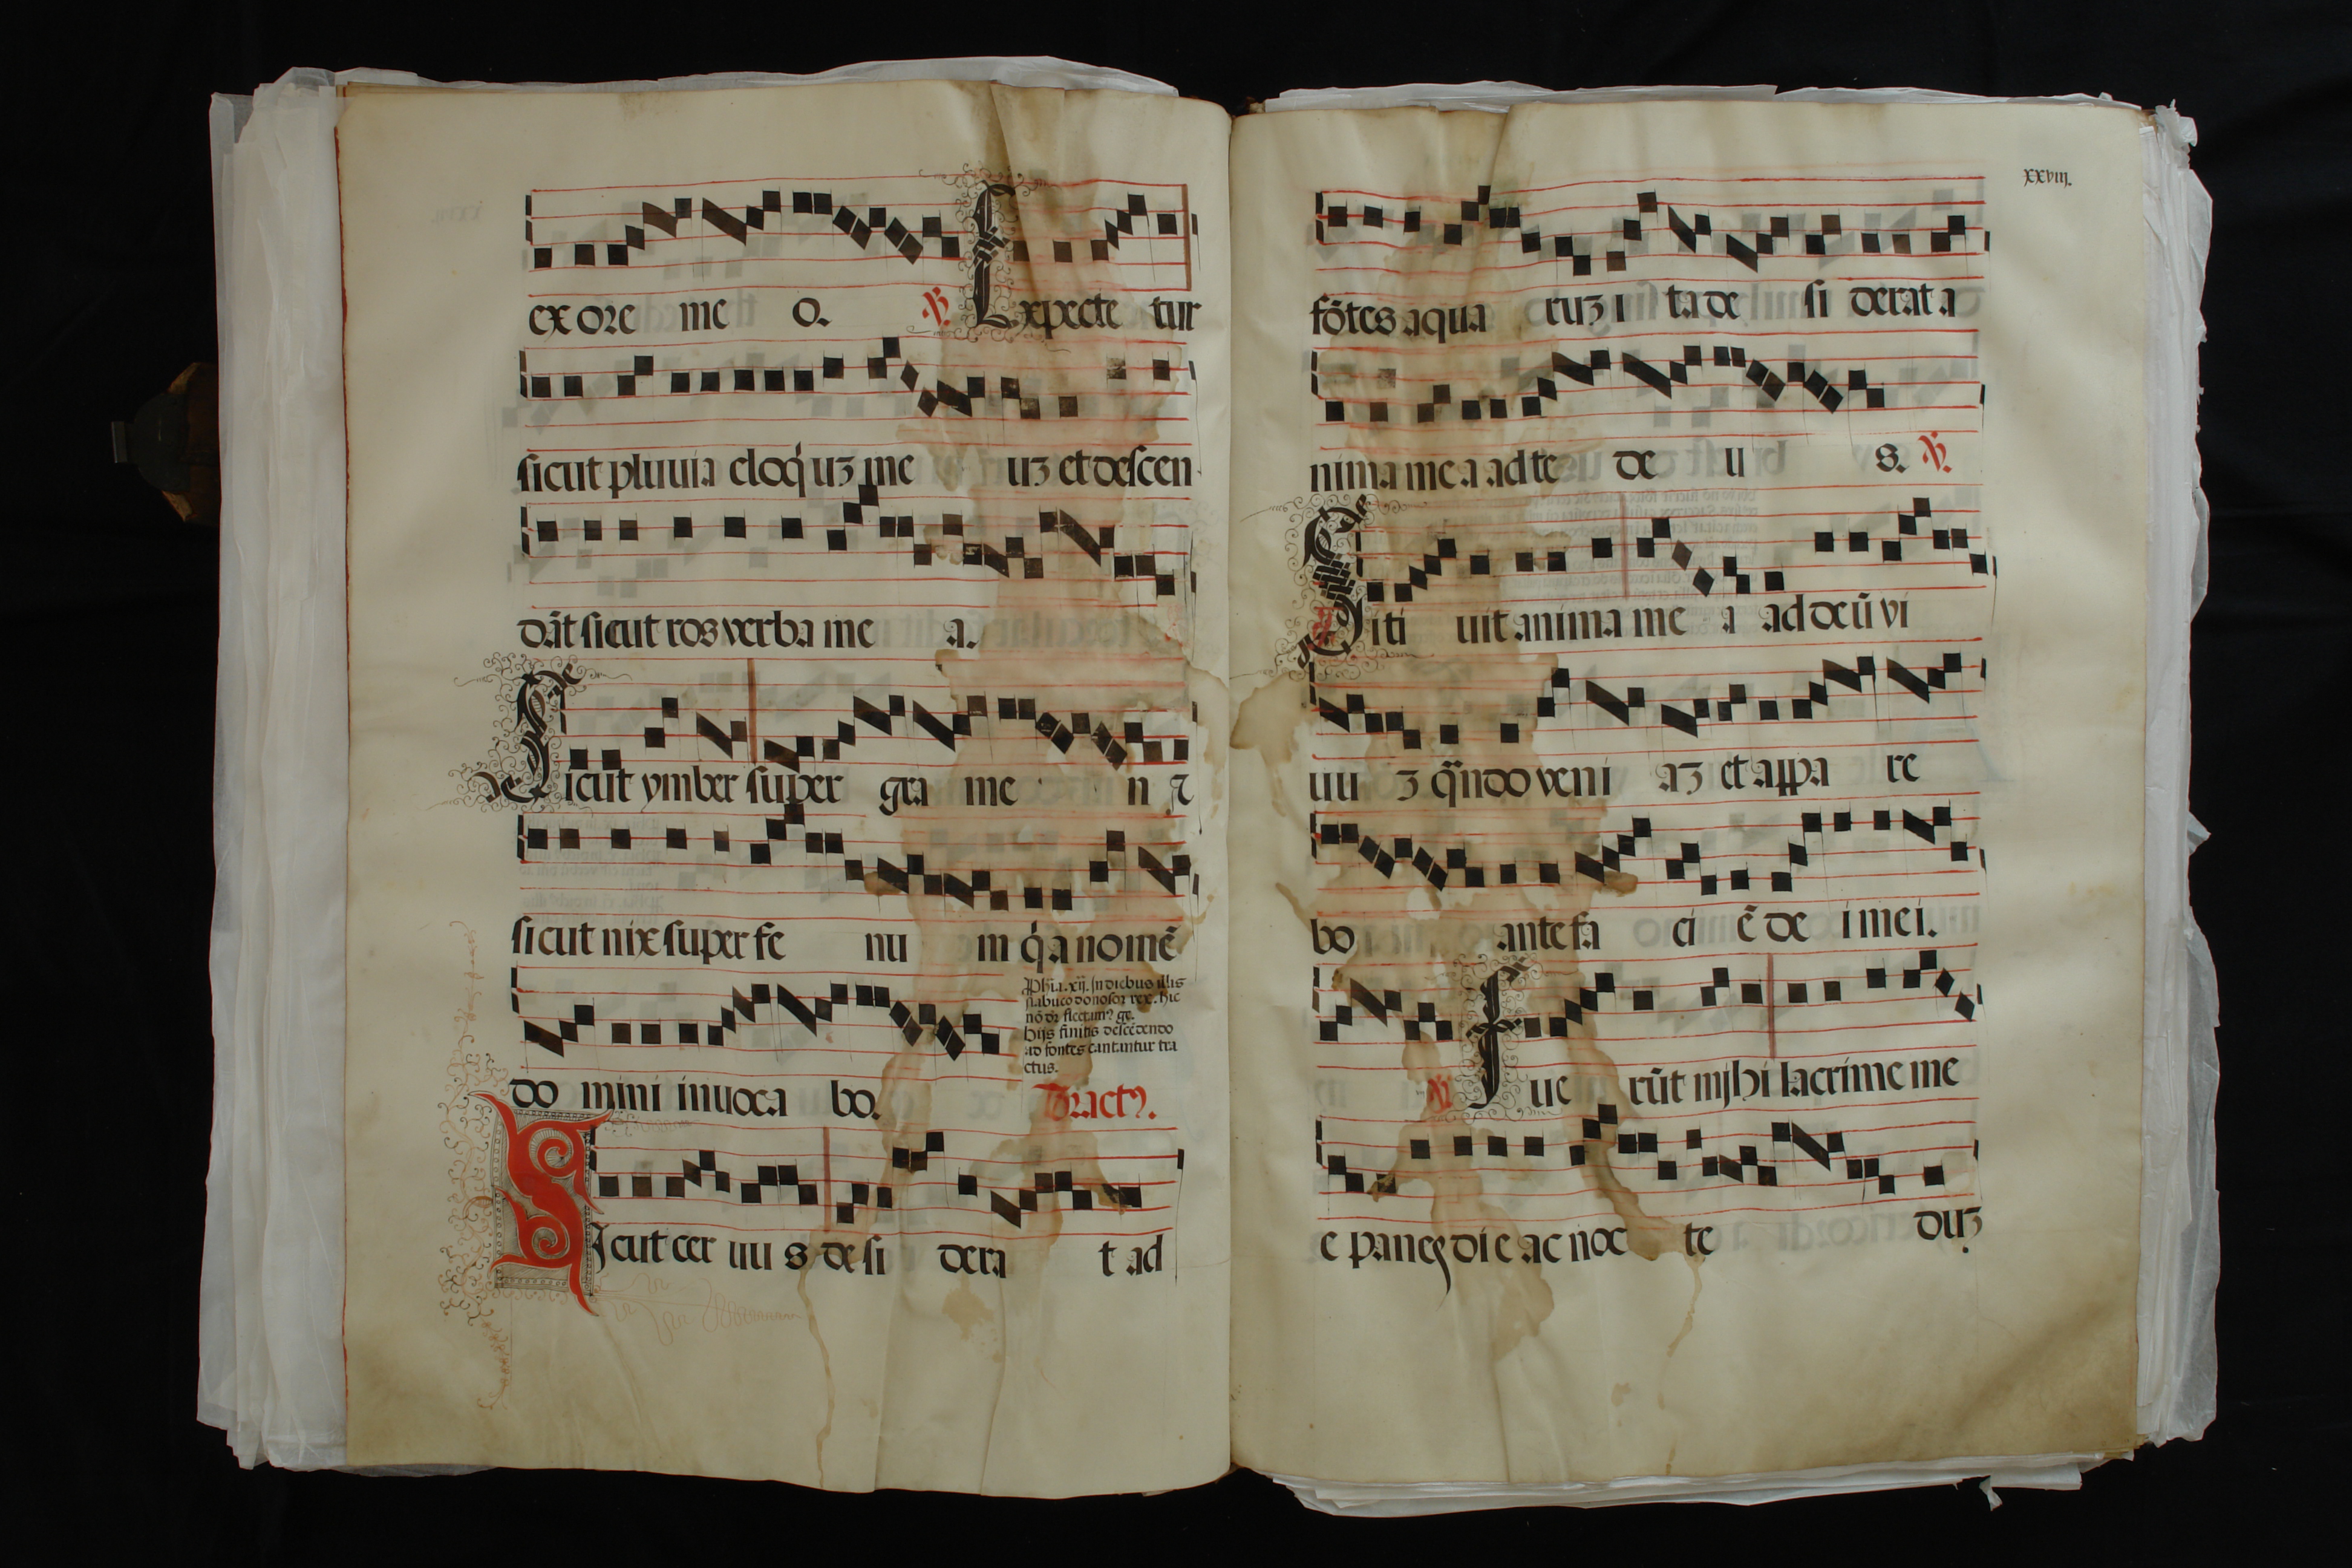 ex ore me o. ℣. Expecte tur
sicut pluuia eloq̓uʒ me uʒ et descen
dāt sicut ros verba me a.
Sicut ymber super gra me n ⁊
sicut nix super fe nu m q̓a nomē
ꝓphīa. xij. In diebus illis
nabucodonosor rex. hic
nō dr̄ flectamꝰ ge.
hijs finitis descēdendo
ad fontes cantantur tra
ctus.
do mini inuoca bo. Tractꝰ.
Sicut cer uu s de si dera t ad
xxviij.
fōtes aqua ruʒ i ta de si derat a
nima me a ad te de u s. ℣.
Siti uit anima me a ad deū vi
uu ʒ qn̄do veni aʒ et appa re
bo ante fa ci ē de i mei.
℣. Fue rūt mjhi lacrime me
e panes die ac noc te duʒ